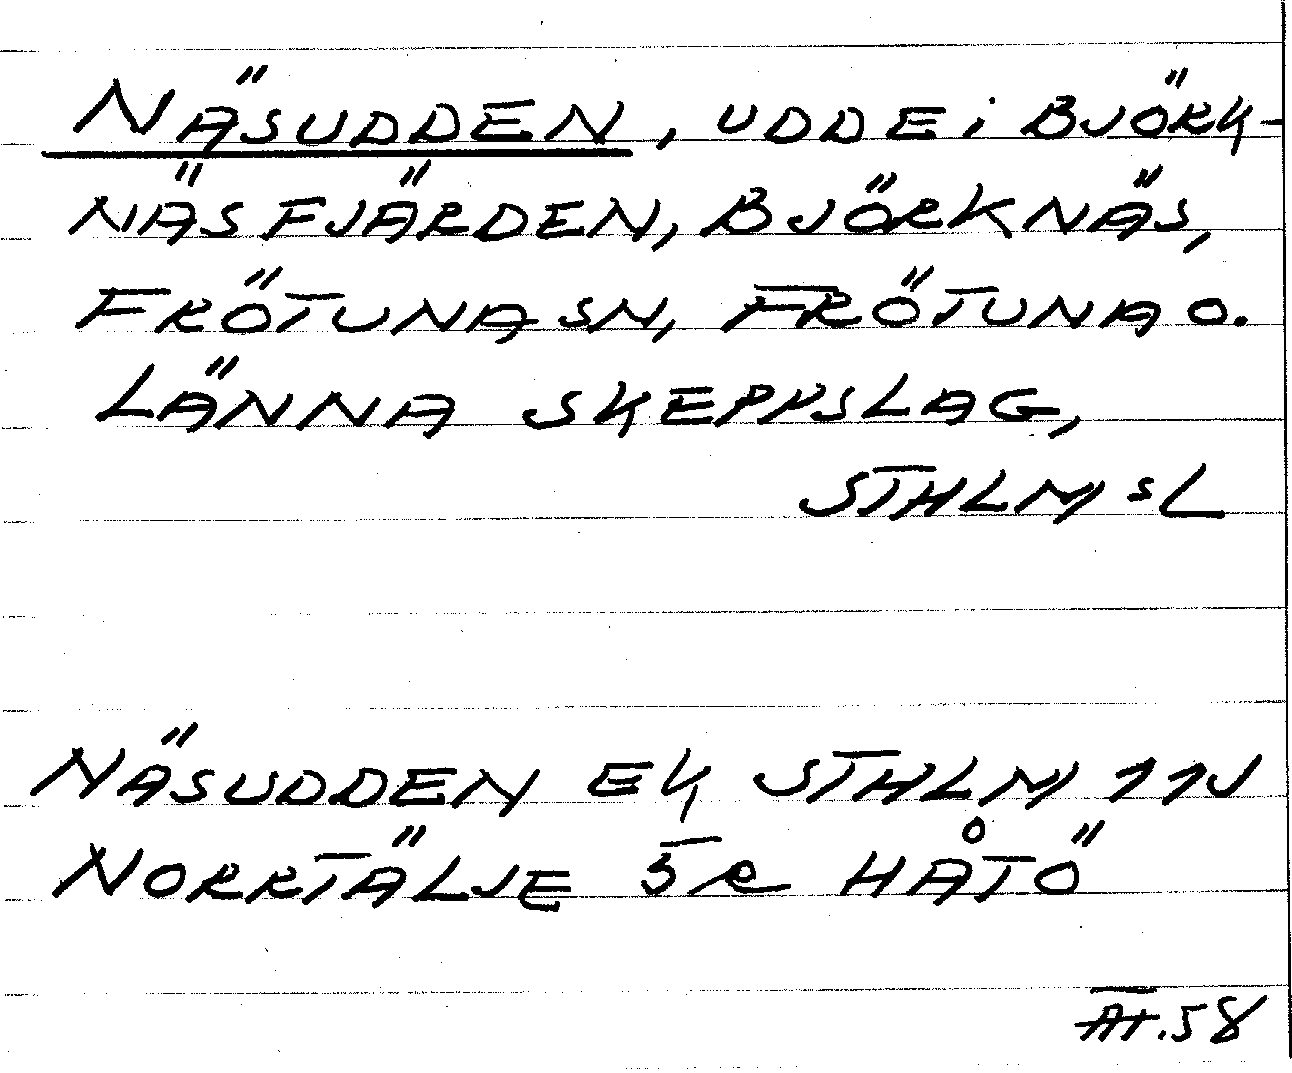 NÄSUDDEN, UDDE i BJÖRK-
NÄSFJÄRDEN, BJÖRKNÄS,
FRÖTUNA SN, FRÖTUNA O.
LÄNNA SKEPPSLAG,
STHLMS L
NÄSUDDEN EK STHLM 11J
NORRTÄLJE 5R HÅTÖ
.58